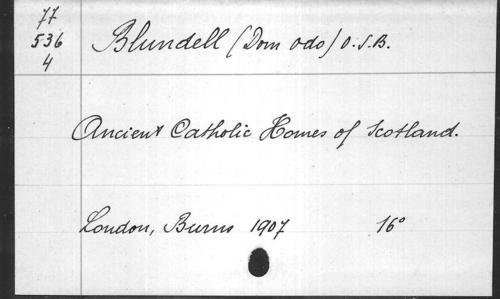 77
536
4
Blundell (Dom Odo) O.S.B.
Ancient Catholic Homes of Scotland.
London, Burns 1907 16°